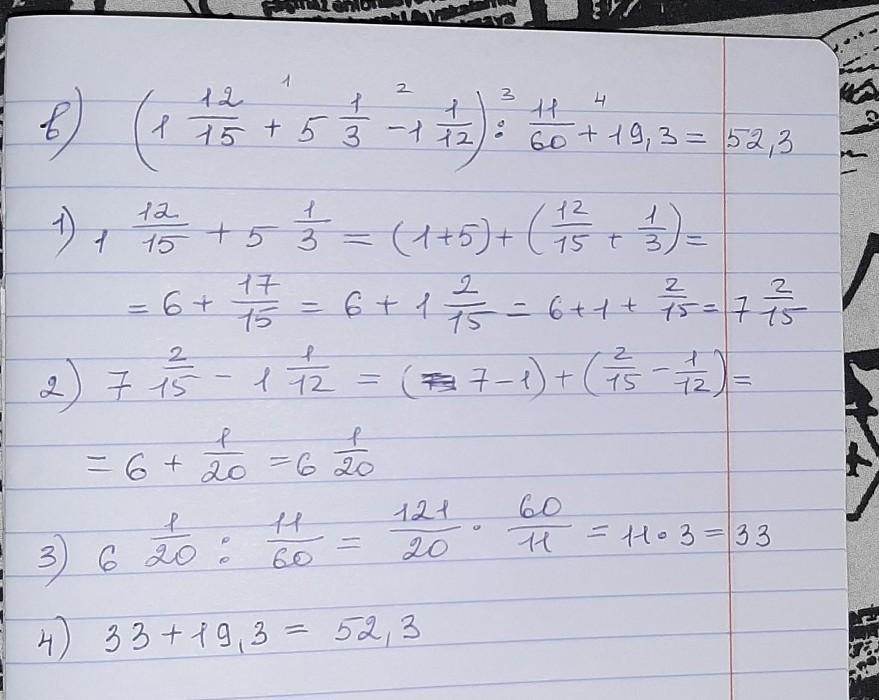 в) (1 12/15 + 5 1/3 - 1 1/12) : 11/60 + 19,3 = 52,3
1 2 3 4
1) 1 12/15 + 5 1/3 = (1+5) + (12/15 + 1/3) =
= 6 + 17/15 = 6 + 1 2/15 = 6+1+ 2/15 = 7 2/15
2) 7 2/15 - 1 1/12 = (7-1) + (2/15 - 1/12) =
= 6 + 1/20 = 6 1/20
3) 6 1/20 : 11/60 = 121/20 · 60/11 = 11·3 = 33
4) 33 + 19,3 = 52,3